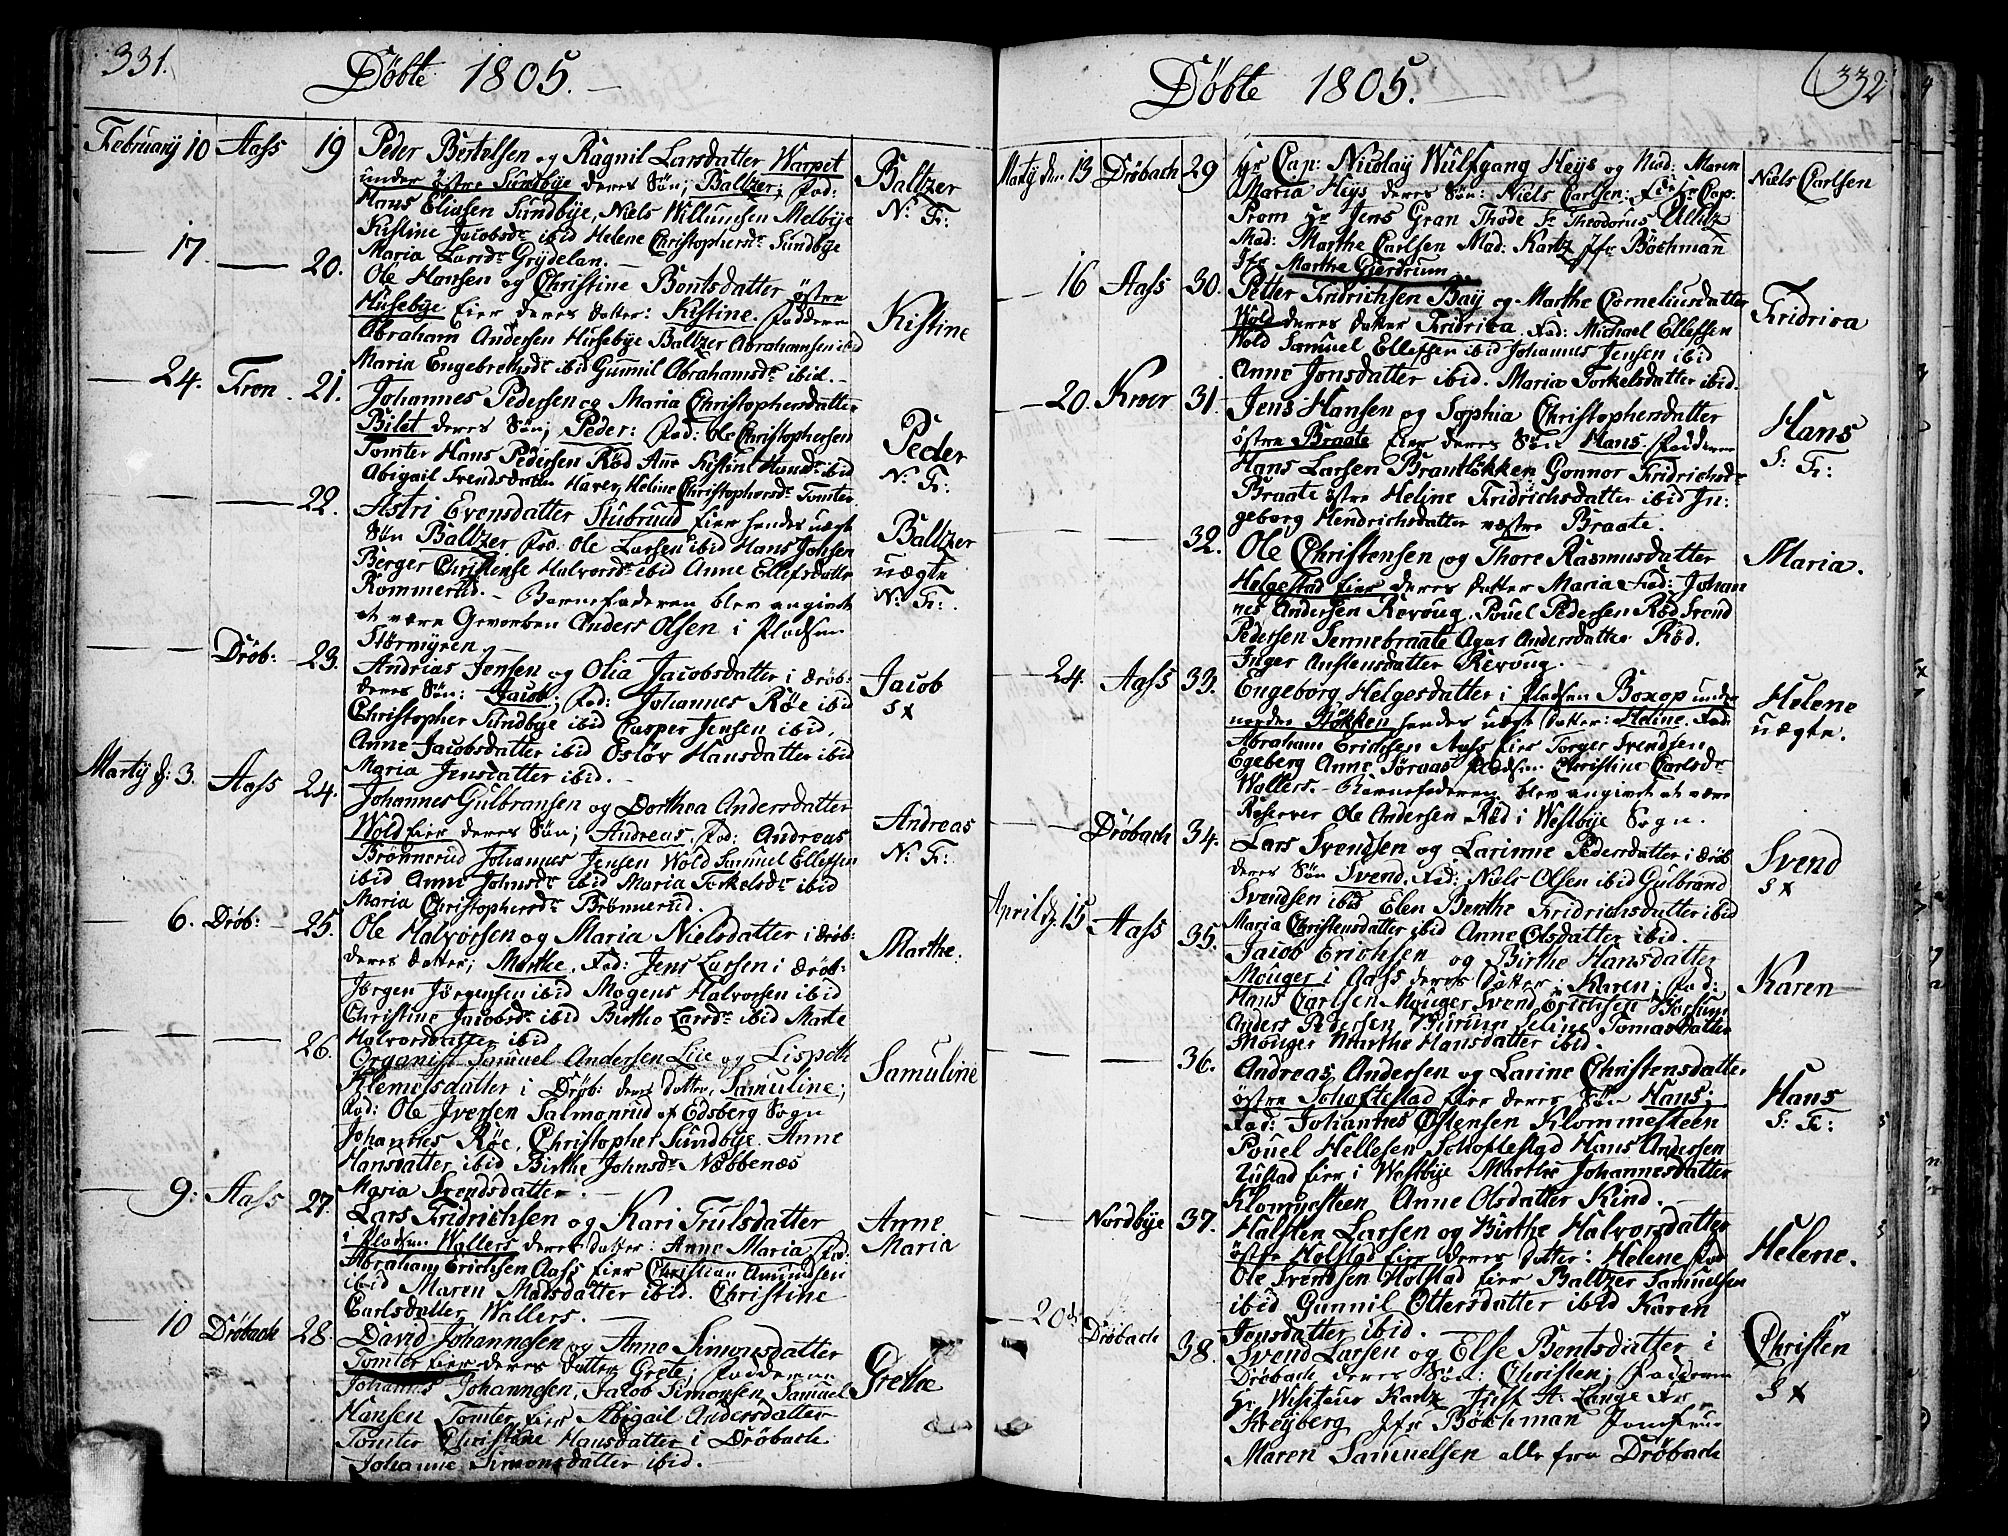 331.
Döbte 1805.
February 10 Aass 19 Peder Bertelsen og Ragnil Larsdatter Warpet
under östre Sundbye deres Søn; Baltzer; Fad:
Baltzer
N: Fr:
Hans Eliasen Sundbye, Niels Willumsen Melbye
Kistine Jacobsdr ibid Helene Christophersdr Sundbye
Maria Larsdr Grydelan.
17. 20. Ole Hansen og Christine Bentsdatter östre
Husebye Eier deres Datter: Kistine. Faddere
Kistine
Abraham Andersen Husebye Baltzer Abrahamsen ibid
Maria Engebretsdr ibid Gunnil Abrahamsdr ibid.
24. Fron 21. Johannes Pedersen og Maria Christophersdatter
Bilet deres Søn; Peder: Fad: Ole Christophersen
Peder
N: Fr:
Tomter Hans Pedersen Röd Anne Kistine Hansdr ibid
Abigail Svendsdatter Haver, Heline Christophersdr Tomter
22. Astri Evensdatter Stubrud Eier hendes uægte
Søn Baltzer Fad. Ole Larsen ibid Hans Johsen
Baltzer
uægte
N: Fr:
Berger Christense Halvorsdr ibid Anne Ellefsdatter
Rommerud. - Barnefaderen blev angivet
at være Gevorben Anders Olsen i Pladsen
Störmyren.
Dröb: 23. Andreas Jensen og Olia Jacobsdatter i Dröb:
deres Søn: Jacob; Fad: Johannes Röe ibid
Jacob
S x
Christopher Sundbye ibid Casper Jensen ibid,
Anne Jacobsdatter ibid Oslöv Hansdatter ibid
Maria Jensdatter ibid.
Martÿ d: 3. Aass 24. Johannes Gulbransen og Dorthea Andersdatter
Wold Eier deres Søn; Andreas. Fad: Andreas
Andreas
N: Fr:
Brönnerud Johannes Jensen Wold Samuel Ellefsen
ibid Anne Johnsdr ibid Maria Torkelsdr ibid
Maria Christophersdr Brönnerud.
6. Dröb: 25. Ole Halvorsen og Maria Nielsdatter i Dröb:
deres Datter; Marthe. Fad: Jens Larsen i Dröb:
Marthe.
Jörgen Jörgensen ibid Mogens Halvorsen ibid
Christine Jacobsdr ibid Birthe Larsdr ibid Marte
Halvorsdatter ibid
26. Organist Samuel Andersen Lüe og Lispeth
Klemetsdatter i Dröb: deres datter, Samuline;
Samuline
Fad: Ole Iversen Salmonrud af Edsberg Sogn
Johannes Röe, Christopher Sundbye. Anne
Hansdatter ibid Birthe Johnsdr Nebbenæs
Maria Svendsdatter.
9: Aass 27. Lars Fridrichsen og Kari Trulsdatter
i Pladsen Wallers deres datter: Anne Maria, Fad:
Anne
Maria
Abraham Erichsen Aass Eier Christian Amundsen
ibid Maren Madsdatter ibid. Christine
Carlsdatter Wallers.
10 Dröbach 28. David Johannesen og Anne Simonsdatter
Tomter Eier deres datter Grete; Faddere
Grethe
Johannes Johannesen, Jacob Simonsen, Samuel
Hansen Tomter Eier Abigail Andersdatter
Tomter Christine Hansdatter i Dröbach
Johanne Simonsdatter ibid.
332
Döbte 1805.
Martÿ den 13 Dröbach 29 Hr Cap: Nicolay Wulfgang Heys og Mad: Maren
Maria Heys deres Søn: Niels Carlsen: F: Hr Cap:
Niels Carlsen
Prom Hr Jens Gran Thode Hr Theodorus
Mad: Marthe Carlsen Mad: Kartz Jfr Böchman
Jfr Marthe Gjerdrum
16 Aass 30. Petter Fridrichsen Bay og Marthe Corneliusdatter
Wold deres Datter Fridrica. Fad: Michael Ellefsen
Fridrica
Wold Samuel Ellefsen ibid Johannes Jensen ibid
Anne Jonsdatter ibid. Maria Torkelsdatter ibid.
20. Kroer 31. Jens Hansen og Sophia Christophersdatter
östre Braate Eier deres Søn: Hans. Faddere
Hans
S: Fr:
Hans Larsen Brantlökken Gonnor Fridrichsdr
Braate östre Heline Fridrichsdatter ibid In-
geborg Hendrichsdatter væstre Braate.
32. Ole Christensen og Thore Rasmusdatter
Helgestad Eier deres Datter Maria Fad: Johan
Maria.
nes Andersen Revoug, Pouel Pedersen Röd Svend
Pedersen Sennebraate Agar Andersdatter Röd.
Inger Anstensdatter Revoug.
24. Aass 33. Engeborg Helgesdatter i Pladsen Boxop under
nordre Stökken hendes uægte Datter: Heline. Fad:
Helene
uægte.
Abraham Erichsen Aass Eier Torger Svendsen
Egeberg Anne Söraas Pladsen Christine Carlsdr
Wallers. - Barnefaderen blev angivet at være
Reserver Ole Andersen Röd i Westbye Sogn.
Dröbach 34. Lars Svendsen og Larinne Pedersdatter i Dröb
deres Søn Svend. Fad: Niels Olsen ibid Gulbrand
Svend
S x
Svendsen ibid Elen Berthe Fridrichsdatter ibid
Maria Christensdatter ibid Anne Olsdatter ibid.
April d. 15 Aass 35. Jacob Erichsen og Birthe Hansdatter
Mouger i Aass deres Datter; Karen; Fad:
Karen
Hans Carlsen Mouger Svend Erichsen Borsum
Anders Pedersen Burum Heline Tomasdatter
Mouger Marthe Hansdatter ibid.
36. Andreas Andersen og Larine Christensdatter
östre Schoftestad Eier deres Søn Hans;
Hans
S: Fr:
Fad: Johannes Östensen Klommesteen
Pouel Hellesen Schoftestad Hans Andersen
Rustad Eier i Westbye Marthe Johannesdatter
Klommesteen Anne Olsdatter Kind.
Nordbye 37. Halsten Larsen og Birthe Halvorsdatter
östre Holstad Eier deres Datter: Helene Fad
Helene.
Ole Svendsen Holstad Eier Baltzer Samuelsen
ibid Gunnil Ottersdatter ibid Karen
Jensdatter ibid.
20de Dröbach 38. Svend Larsen og Else Bentsdatter i
Dröbach deres Søn: Christen; Faddere
Christen
S x
Hr Wisiteur Kartz Just H: Lange Fr
Kreyberg Jfr Böckman Jomfrue
Maren Samuelsen alle fra Dröbach